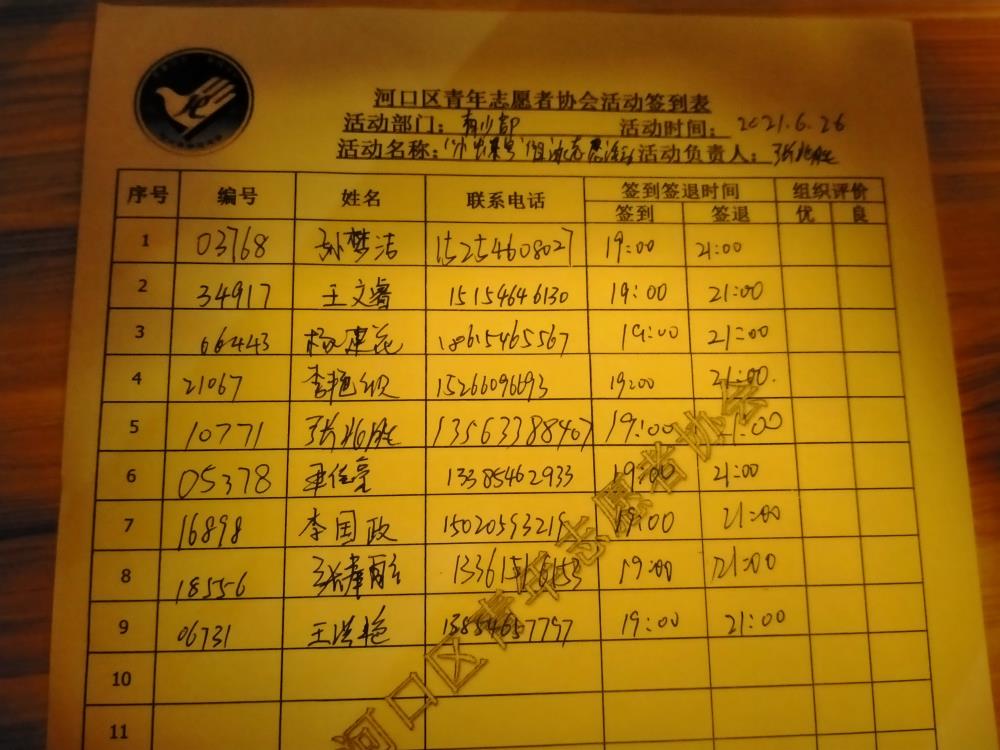 河口区青年志愿者协会活动签到表
活动部门：青少部 活动时间：2021.6.26
活动名称： 活动负责人：张兆胜
序号 编号 姓名 联系电话 签到签退时间 组织评价
签到 签退 优 良
1 03768 孙梦洁 15254608027 19:00 21:00
2 34917 王文睿 15154646130 19:00 21:00
3 66443 杨建花 18615465567 19:00 21:00
4 21067 李艳欣 15266096693 19:00 21:00.
5 10771 张兆胜 13563388407 19:00 21:00
6 05378 13385462933 19:00 21:00
7 16898 李国政 19:00 21:00
8 18556 19:00 21:00
9 06731 王洪艳 13854657797 19:00 21:00
10
11
河口区青年志愿者协会